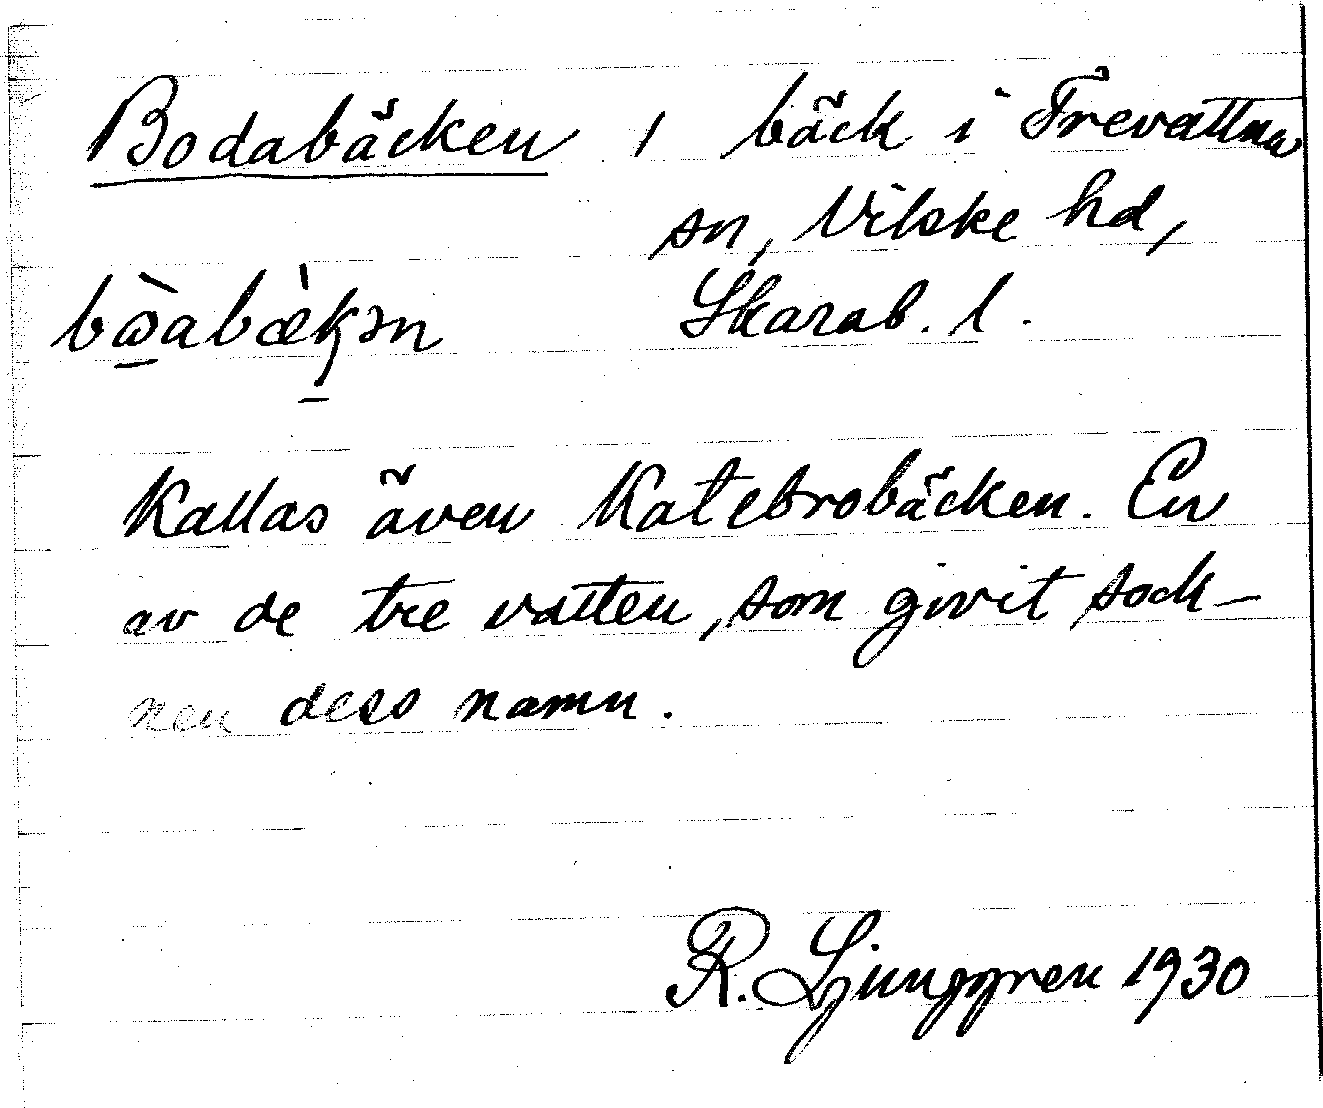 Bodabäcken, bäck i Trevattna
sn, Vilske hd,
bɷ̀abæ̀kən Skarab. l.
Kallas även Katebrobäcken. En
av de tre vatten, som givit sock-
nen dess namn.
R. Ljunggren 1930